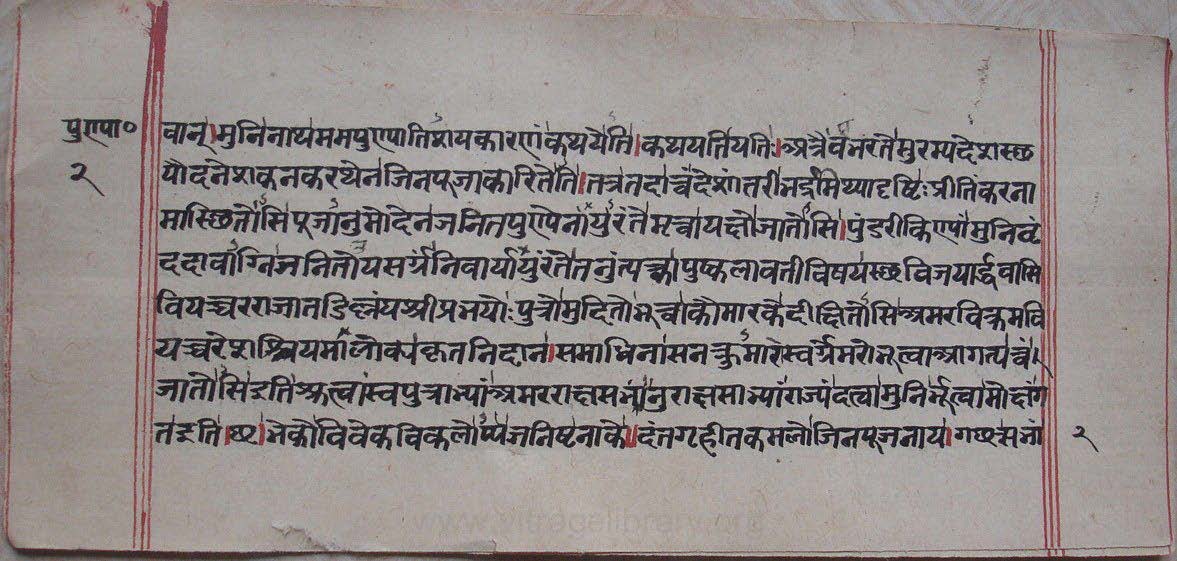 पुण्या० वान्।मुनिनाथममपुण्यातिशयकारणंकथयेति।कथयतियतिः।अत्रैवभरतेसुरम्यदेशस्छ
२ पौदनेशकनकरथेनजिनपूजाकारितेति।तत्रतदात्वंदेशांतरीभद्रमिथ्यादृष्टिः प्रीतिंकरना
मास्छितोसिपूजानुमोदेनजनितपुण्येनायुरंतेमृत्वायक्षोजातोसि।पुंडरीकिण्यांमुनिवृं
ददावाग्निजनितोपसर्गंनिवार्यायुरंतेतनुंत्यक्त्वापुष्कलावतीविषयस्छविजयार्द्धवासि
वियच्चरराजातडिल्लंघश्रीप्रभयोः पुत्रोमुदितोभूत्वाकौमारकेदीक्षितोसिअमरविक्रमवि
यच्चरेशश्रियमालोक्यकृतनिदानः।समाधिनासनत्कुमारेस्वर्गेमरोभूत्वाआगत्यत्वं।
जातोसिइतिश्रुत्वास्वपुत्राभ्यांअमरराक्षसभानुराक्षसाभ्यांराज्यंदत्वामुनिर्भूत्वामोक्षंग
तइति।छ।भेकोविवेकविकलोप्यजनिष्टनाके।दंतगृहीतकमलोजिनपूजनाय।गछन्सभां २
www.vitragelibrary.org